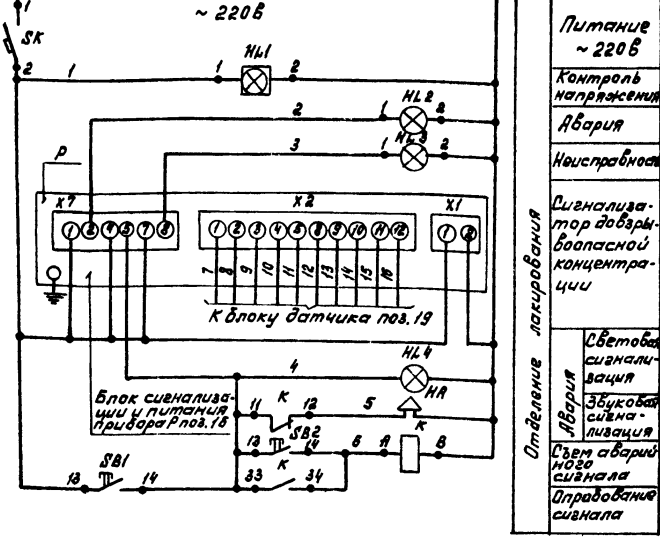 1
~ 220В
SK
2
1
1
HL1
2
2
1
HL2
2
3
1
HL3
2
P
X7
X2
X1
1 2 4 5 7 8
1 2 3 4 5 8 9 10 11 12
1 2
7 8 9 10 11 12 13 14 15 16
К блоку датчика поз. 19
4
HL4
HA
11
K
12
5
K
Блок сигнализа-
ции и питания
прибора Р поз. 18
13
SB2
14
6
A
B
K
33
34
13
SB1
14
Отделение лакирования
Питание
~ 220В
Контроль
напряжения
Авария
Неисправнос
Сигнализа-
тор довзры-
воопасной
концентра-
ции
Авария
Световая
сигнали-
зация
Звуковая
сигна-
лизация
Съем аварий-
ного
сигнала
Опробование
сигнала